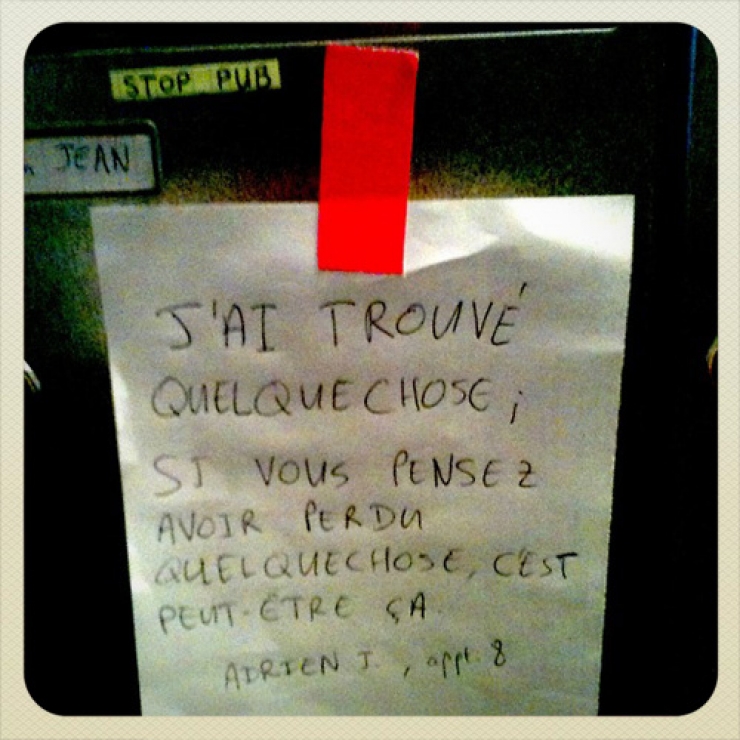 STOP PUB
JEAN
J'AI TROUVÉ
QUELQUECHOSE ;
SI VOUS PENSEZ
AVOIR PERDU
QUELQUECHOSE, C'EST
PEUT-ÊTRE ÇA.
ADRIEN J. , appt. 8